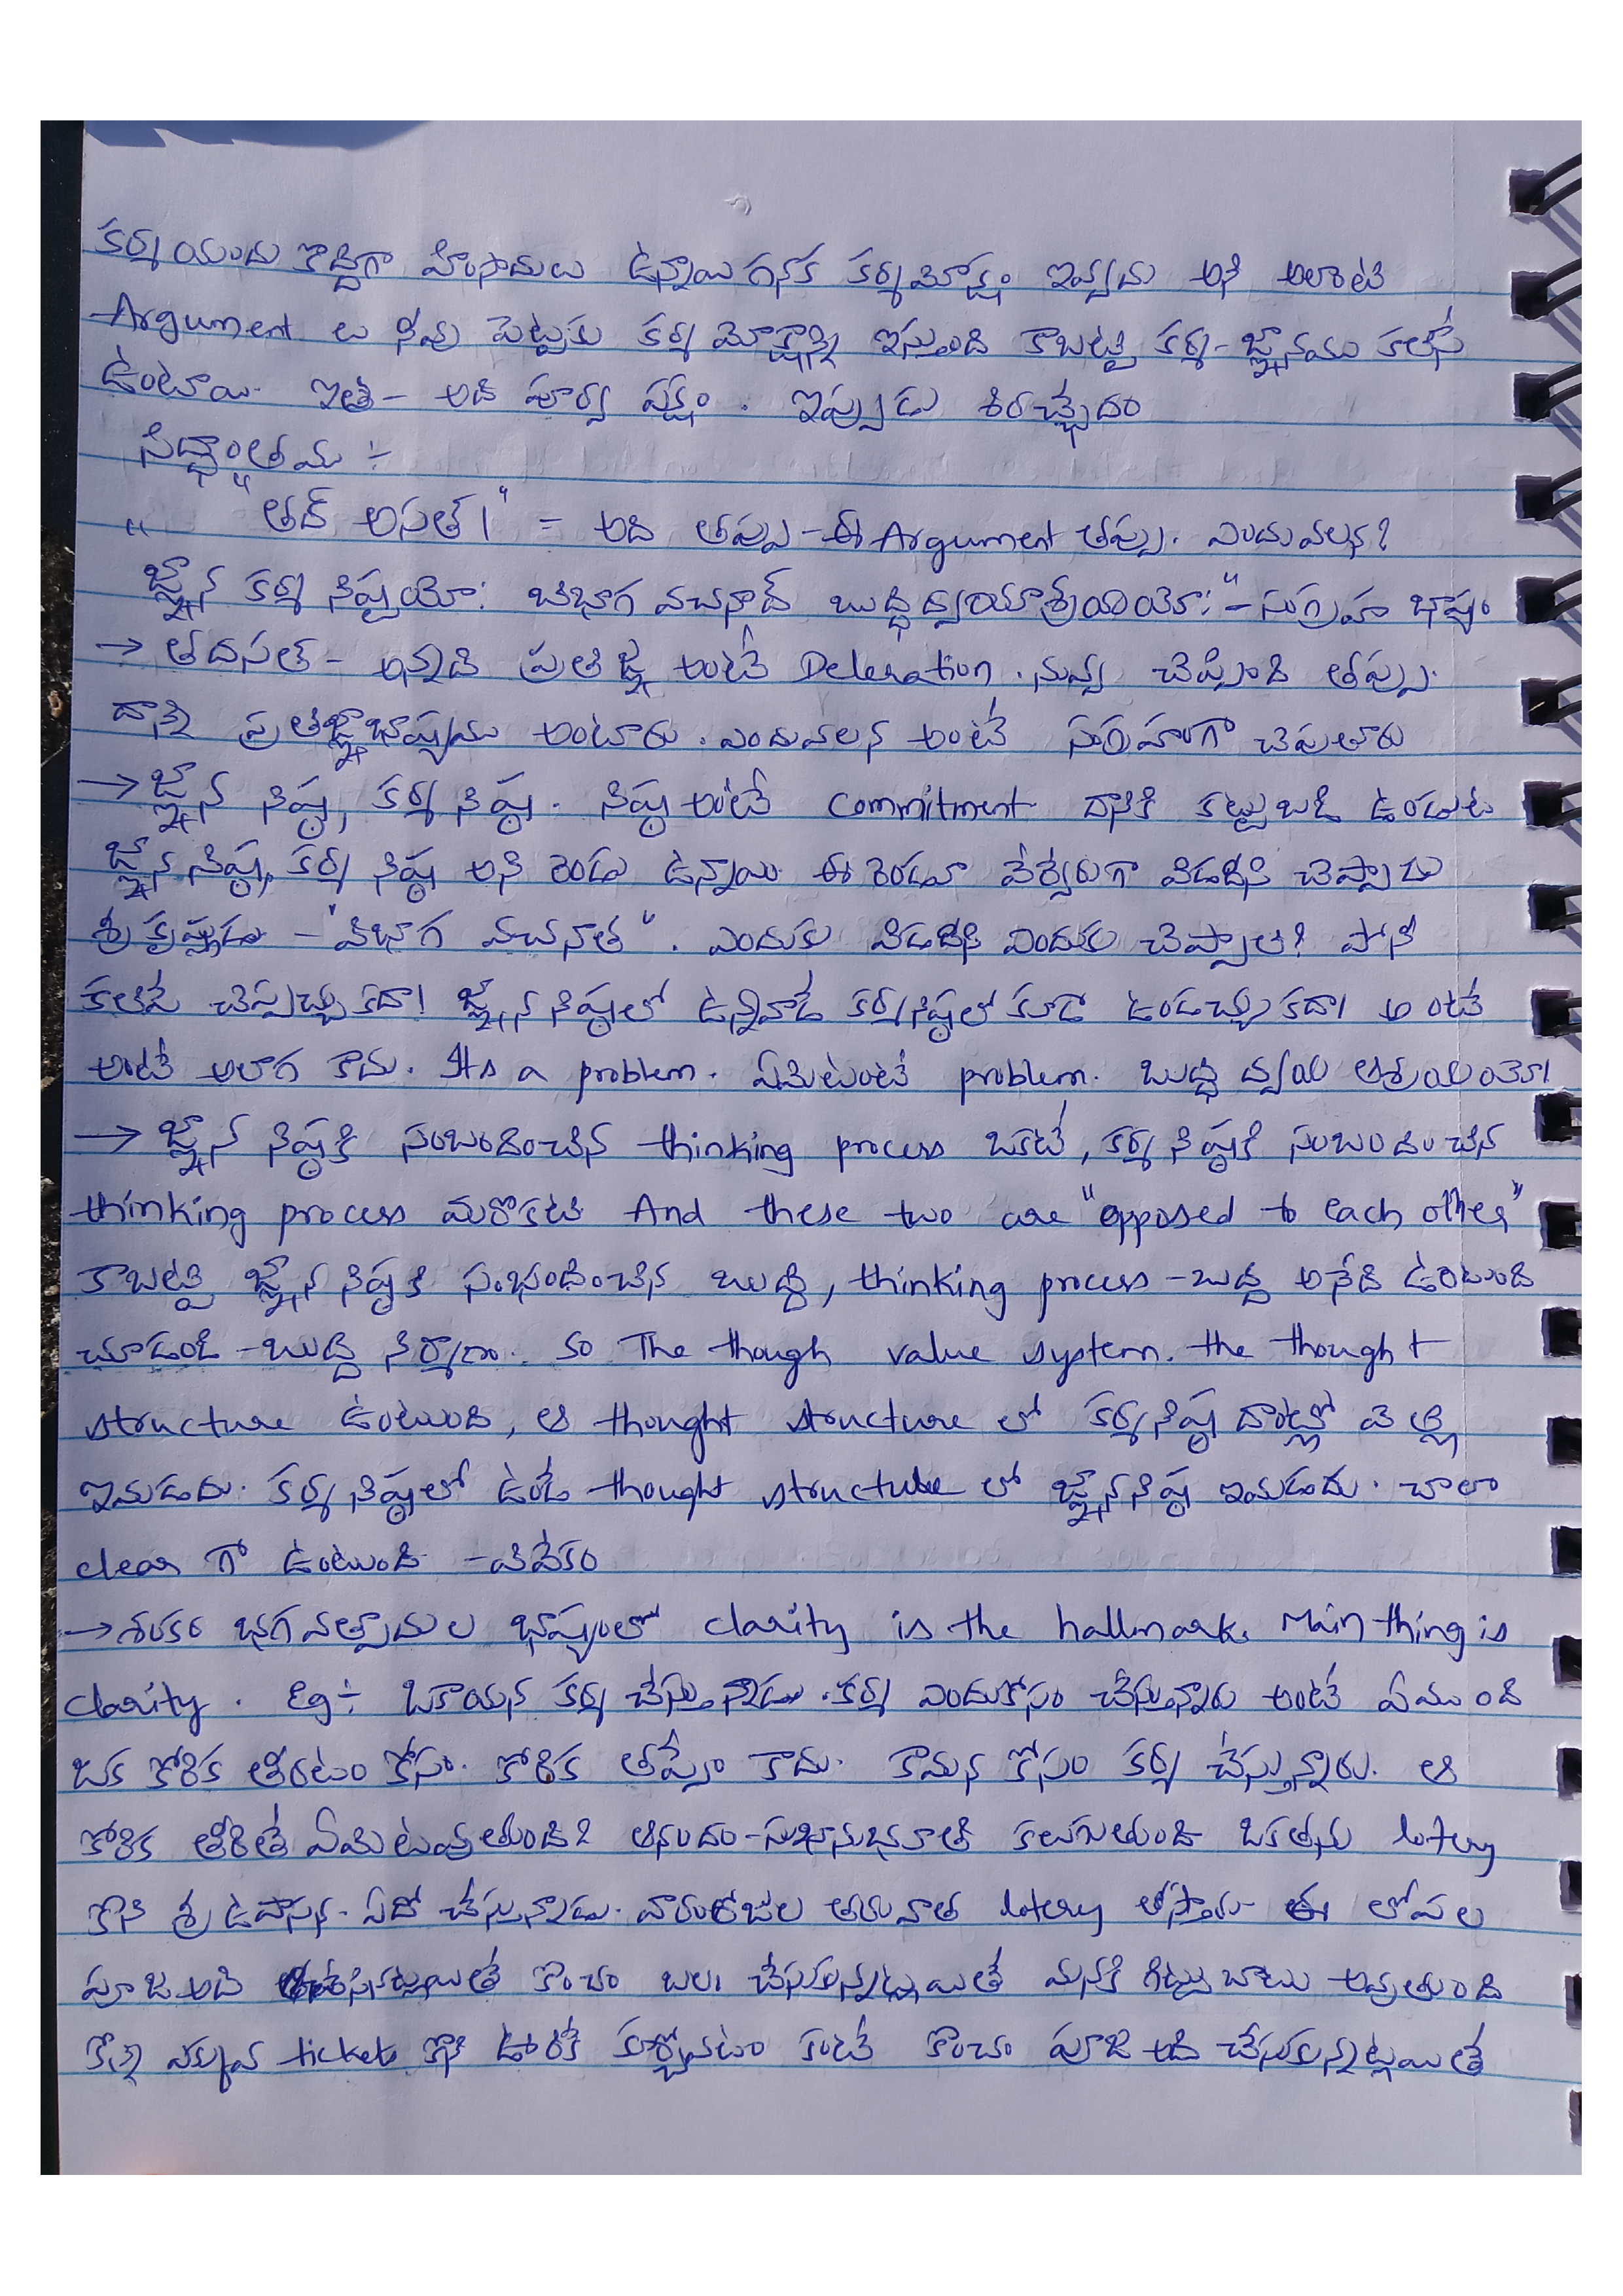 కర్మ యందు కొద్దిగా హింసాదులు ఉన్నాయి గనక కర్మమోక్షం ఇవ్వదు అని అలాంటి
Argument లు నీవు పెట్టకు కర్మ మోక్షాన్ని ఇస్తుంది కాబట్టి కర్మ-జ్ఞానము కలిసే
ఉంటాయి. ఇతి - అది పూర్వ పక్షం. ఇప్పుడు శిరచ్ఛేదం
సిద్ధాంతము :-
" "తద్ అసత్।" = అది తప్పు - ఈ Argument తప్పు. ఎందువలన?
జ్ఞాన కర్మ నిష్ఠయో: విభాగ వచనాద్ బుద్ధిద్వయాశ్రయయో:" - సంగ్రహ భాష్యం
→ తదసత్ - అన్నాది ప్రతిజ్ఞ అంటే Deleration. నువ్వు చెప్పింది తప్పు.
దాన్ని ప్రతిజ్ఞాభాష్యము అంటారు. ఎందువలన అంటే సంగ్రహంగా చెపుతారు
→ జ్ఞాన నిష్ఠ, కర్మ నిష్ఠ. నిష్ఠ అంటే commitment దానికి కట్టుబడి ఉండుట
జ్ఞాన నిష్ఠ, కర్మ నిష్ఠ అని రెండు ఉన్నాయి. ఈ రెండూ వేర్వేరుగా విడదీసి చెప్పాడు
శ్రీకృష్ణుడు - "విభాగ వచనాత్". ఎందుకు విడదీసి ఎందుకు చెప్పాలి? పోనీ
కలిపే చెప్పచ్చు కదా! జ్ఞాన నిష్ఠలో ఉన్నవాడే కర్మనిష్ఠలో కూడా ఉండచ్చు కదా! అంటే
అంటే అలాగ కాదు. Its a problem. ఏమిటంటే problem. బుద్ధి ద్వయ ఆశ్రయయో!
→ జ్ఞాన నిష్ఠకి సంబందించిన thinking process ఒకటి, కర్మ నిష్ఠకి సంబందించిన
thinking process మరొకటి And these two are "opposed to each other"
కాబట్టి జ్ఞాన నిష్ఠకి సంభందించిన బుద్ధి, thinking process - బుద్ధి అనేది ఉంటుంది
చూడండి - బుద్ధి నిర్మాణం. so The though value system. the thought
structure ఉంటుంది, ఆ thought structure లో కర్మనిష్ఠ దాంట్లో వెళ్లి
ఇమడదు. కర్మ నిష్ఠలో ఉండే thought structure లో జ్ఞాననిష్ఠ ఇమడదు. చాలా
clear గా ఉంటుంది - వివేకం
→ శంకర భగవత్పాదుల భాష్యంలో clarity is the hallmark. Main thing is
clarity. Eg:- ఒకాయన కర్మ చేస్తున్నాడు. కర్మ ఎందుకోసం చేస్తున్నారు అంటే ఏముంది
ఒక కోరిక తీరటం కోసం. కోరిక తప్పేం కాదు. కామన కోసం కర్మ చేస్తున్నారు. ఆ
కోరిక తీరితే ఏమిటవుతుంది? ఆనందం - సుఖానుభూతి కలుగుతుంది. ఒకతను lotery
కొని శ్రీ ఉపాసన. ఏదో చేస్తున్నాడు. వారంరోజుల తరువాత lotery తీస్తారు. ఈ లోపల
పూజ అది కొంచం బలం చేసుకున్నట్లయితే మనకి గిట్టుబాటు అవుతుంది
కొన్ని ఎక్కువ ticket కొని ఊరికే కూర్చోవటం కంటే కొంచం పూజ అది చేసుకున్నట్లయితే